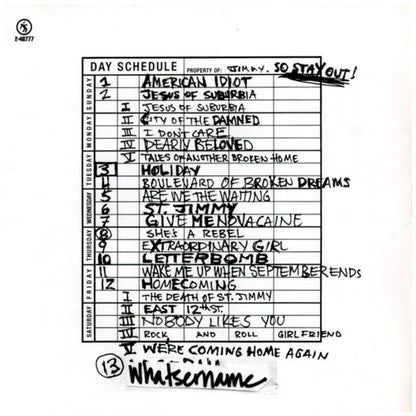 2-48777
DAY SCHEDULE PROPERTY OF: JIMMY. SO STAY OUT!
SUNDAY
1 AMERICAN IDIOT
2 JESUS OF SUBURBIA
I JESUS OF SUBURBIA
MONDAY
II CITY OF THE DAMNED
III I DON'T CARE
IV DEARLY BELOVED
V TALES OF ANOTHER BROKEN HOME
TUESDAY
3 HOLIDAY
4 BOULEVARD OF BROKEN DREAMS
5 ARE WE THE WAITING
WEDNESDAY
6 ST. JIMMY
7 GIVE ME NOVACAINE
THURSDAY
8 SHE'S A REBEL
9 EXTRAORDINARY GIRL
10 LETTERBOMB
FRIDAY
11 WAKE ME UP WHEN SEPTEMBER ENDS
12 HOMECOMING
I THE DEATH OF ST. JIMMY
SATURDAY
II EAST 12TH ST.
III NOBODY LIKES YOU
IV ROCK AND ROLL GIRLFRIEND
V WERE COMING HOME AGAIN
13 Whatsername